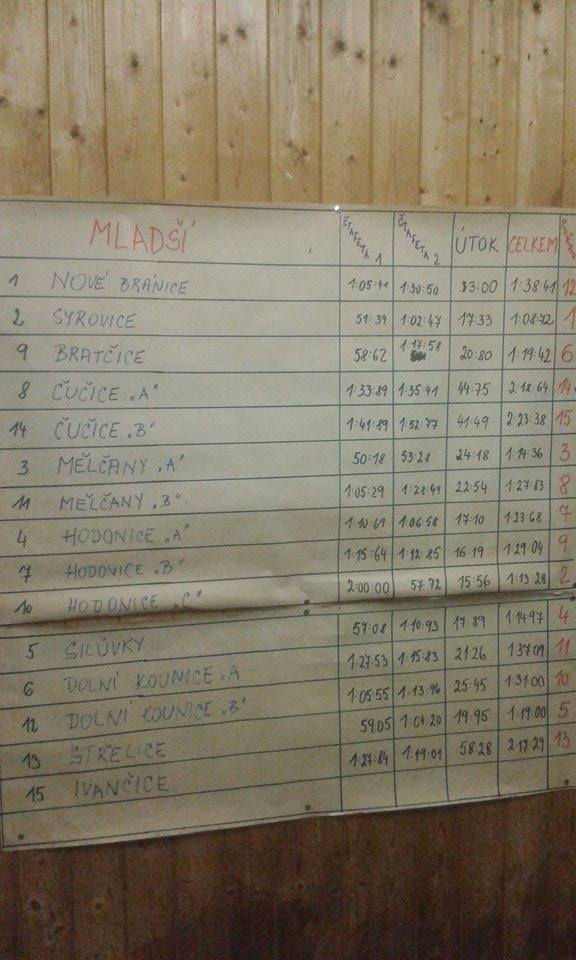 MLADŠÍ ŠTAFETA 1 ŠTAFETA 2 ÚTOK CELKEM
1 NOVÉ BRÁNICE 1:05:41 1:30:50 33:00 1:38:41 12
2 SYROVICE 51:39 1:02:47 17:33 1:08:72 1
9 BRATČICE 58:62 1:17:58 20:80 1:19:42 6
8 ČUČICE „A" 1:33:89 1:35:41 44:75 2:18:64 14
14 ČUČICE „B" 1:41:89 1:52:77 41:49 2:23:38 15
3 MĚLČANY „A" 50:18 53:28 24:18 1:14:36 3
11 MĚLČANY „B" 1:05:29 1:28:49 22:54 1:27:83 8
4 HODONICE „A" 1:10:69 1:06:58 17:10 1:23:68 7
7 HODONICE „B" 1:15:64 1:12:85 16:19 1:29:04 9
10 HODONICE „C" 2:00:00 57:72 15:56 1:13:28 2
5 SILŮVKY 57:08 1:10:93 17:89 1:14:97 4
6 DOLNÍ KOUNICE „A 1:27:53 1:15:83 21:26 1:37:09 11
12 DOLNÍ KOUNICE „B" 1:05:55 1:13:96 25:45 1:31:00 10
13 STŘELICE 59:05 1:04:20 19:95 1:19:00 5
15 IVANČICE 1:27:84 1:19:01 58:28 2:17:29 13